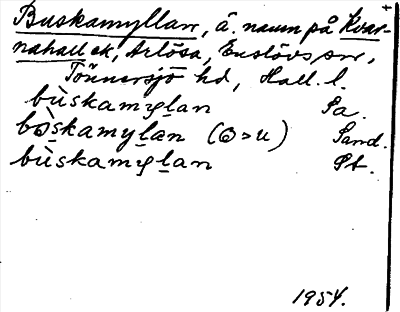 Buskamyllan, ä. namn på Kvar-
nahall ek, Årlösa, Enslövs sn,
Tönnersjö hd, Hall. l.
bùskamylan Pa.
bɷskamylan (ɷ>u) Sand.
bùskamylan St.
1954.